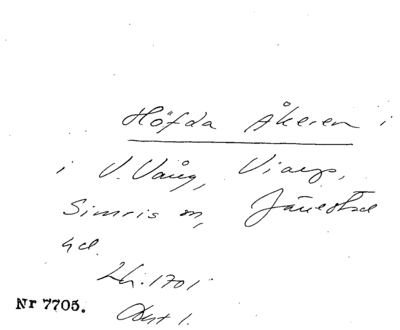 Höfda Åkeren i
i V. Vång, Viarps,
Simris sn, Järrestad
hd.
Lhi. 1701
Nr 7705.